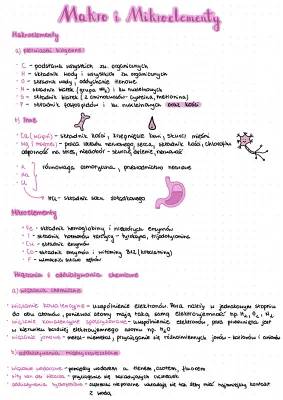 Makro i Mikroelementy
Makroelementy
a) pierwiastki biogenne
• C - podstawa wszystkich zw. organicznych
• H - składnik wody i wszystkich zw. organicznych
• O - składnik wody, oddychanie tlenowe
• N - składnik białek (grupa -NH2) i kw. nukleinowych
• S - składnik białek (2 aminokwasów: cysteina, metionina)
• P - składnik fosfolipidów i kw. nukleinowych oraz kości
b) Inne
• Ca (wapń) - składnik kości, krzepnięcie krwi, skurcz mięśni
• Mg (magnez) - praca układu nerwowego, serca, składnik kości, chlorofilu
odporność na stres, niedobór - skurcze, nerwowość
• K
• Na
• Cl
równowaga osmotyczna, przewodnictwo nerwowe
HCl - składnik soku żołądkowego
Mikroelementy
• Fe - składnik hemoglobiny i niektórych enzymów
• I - składnik hormonów tarczycy - tyroksyna, trójjodotyronina
• Cu - składnik enzymów
• Co - składnik enzymów i witaminy B12 (kobalamina)
• F - wzmacnia szkliwo zębów
Wiązania i oddziaływania chemiczne
a) wiązania chemiczne
• wiązanie kowalencyjne - uwspólnienie elektronów. Para należy w jednakowym stopniu
do obu atomów, ponieważ atomy mają taką samą elektroujemność np. H2, O2, N2
• wiązanie kowalencyjne spolaryzowane - uwspólnienie elektronów, para przesunięta jest
w kierunku bardziej elektroujemnego atomu np. H2O
• wiązanie jonowe - metal-niemetal, przyciąganie się różnoimiennych jonów - kationów i anionów
b) oddziaływania międzycząsteczkowe
• wiązanie wodorowe - pomiędzy wodorem a tlenem, azotem, fluorem
• siły van der Waalsa - przyciąganie się
• oddziaływania hydrofobowe - cząsteczki niepolarne układają się tak żeby mieć najmniejszy kontakt
z wodą